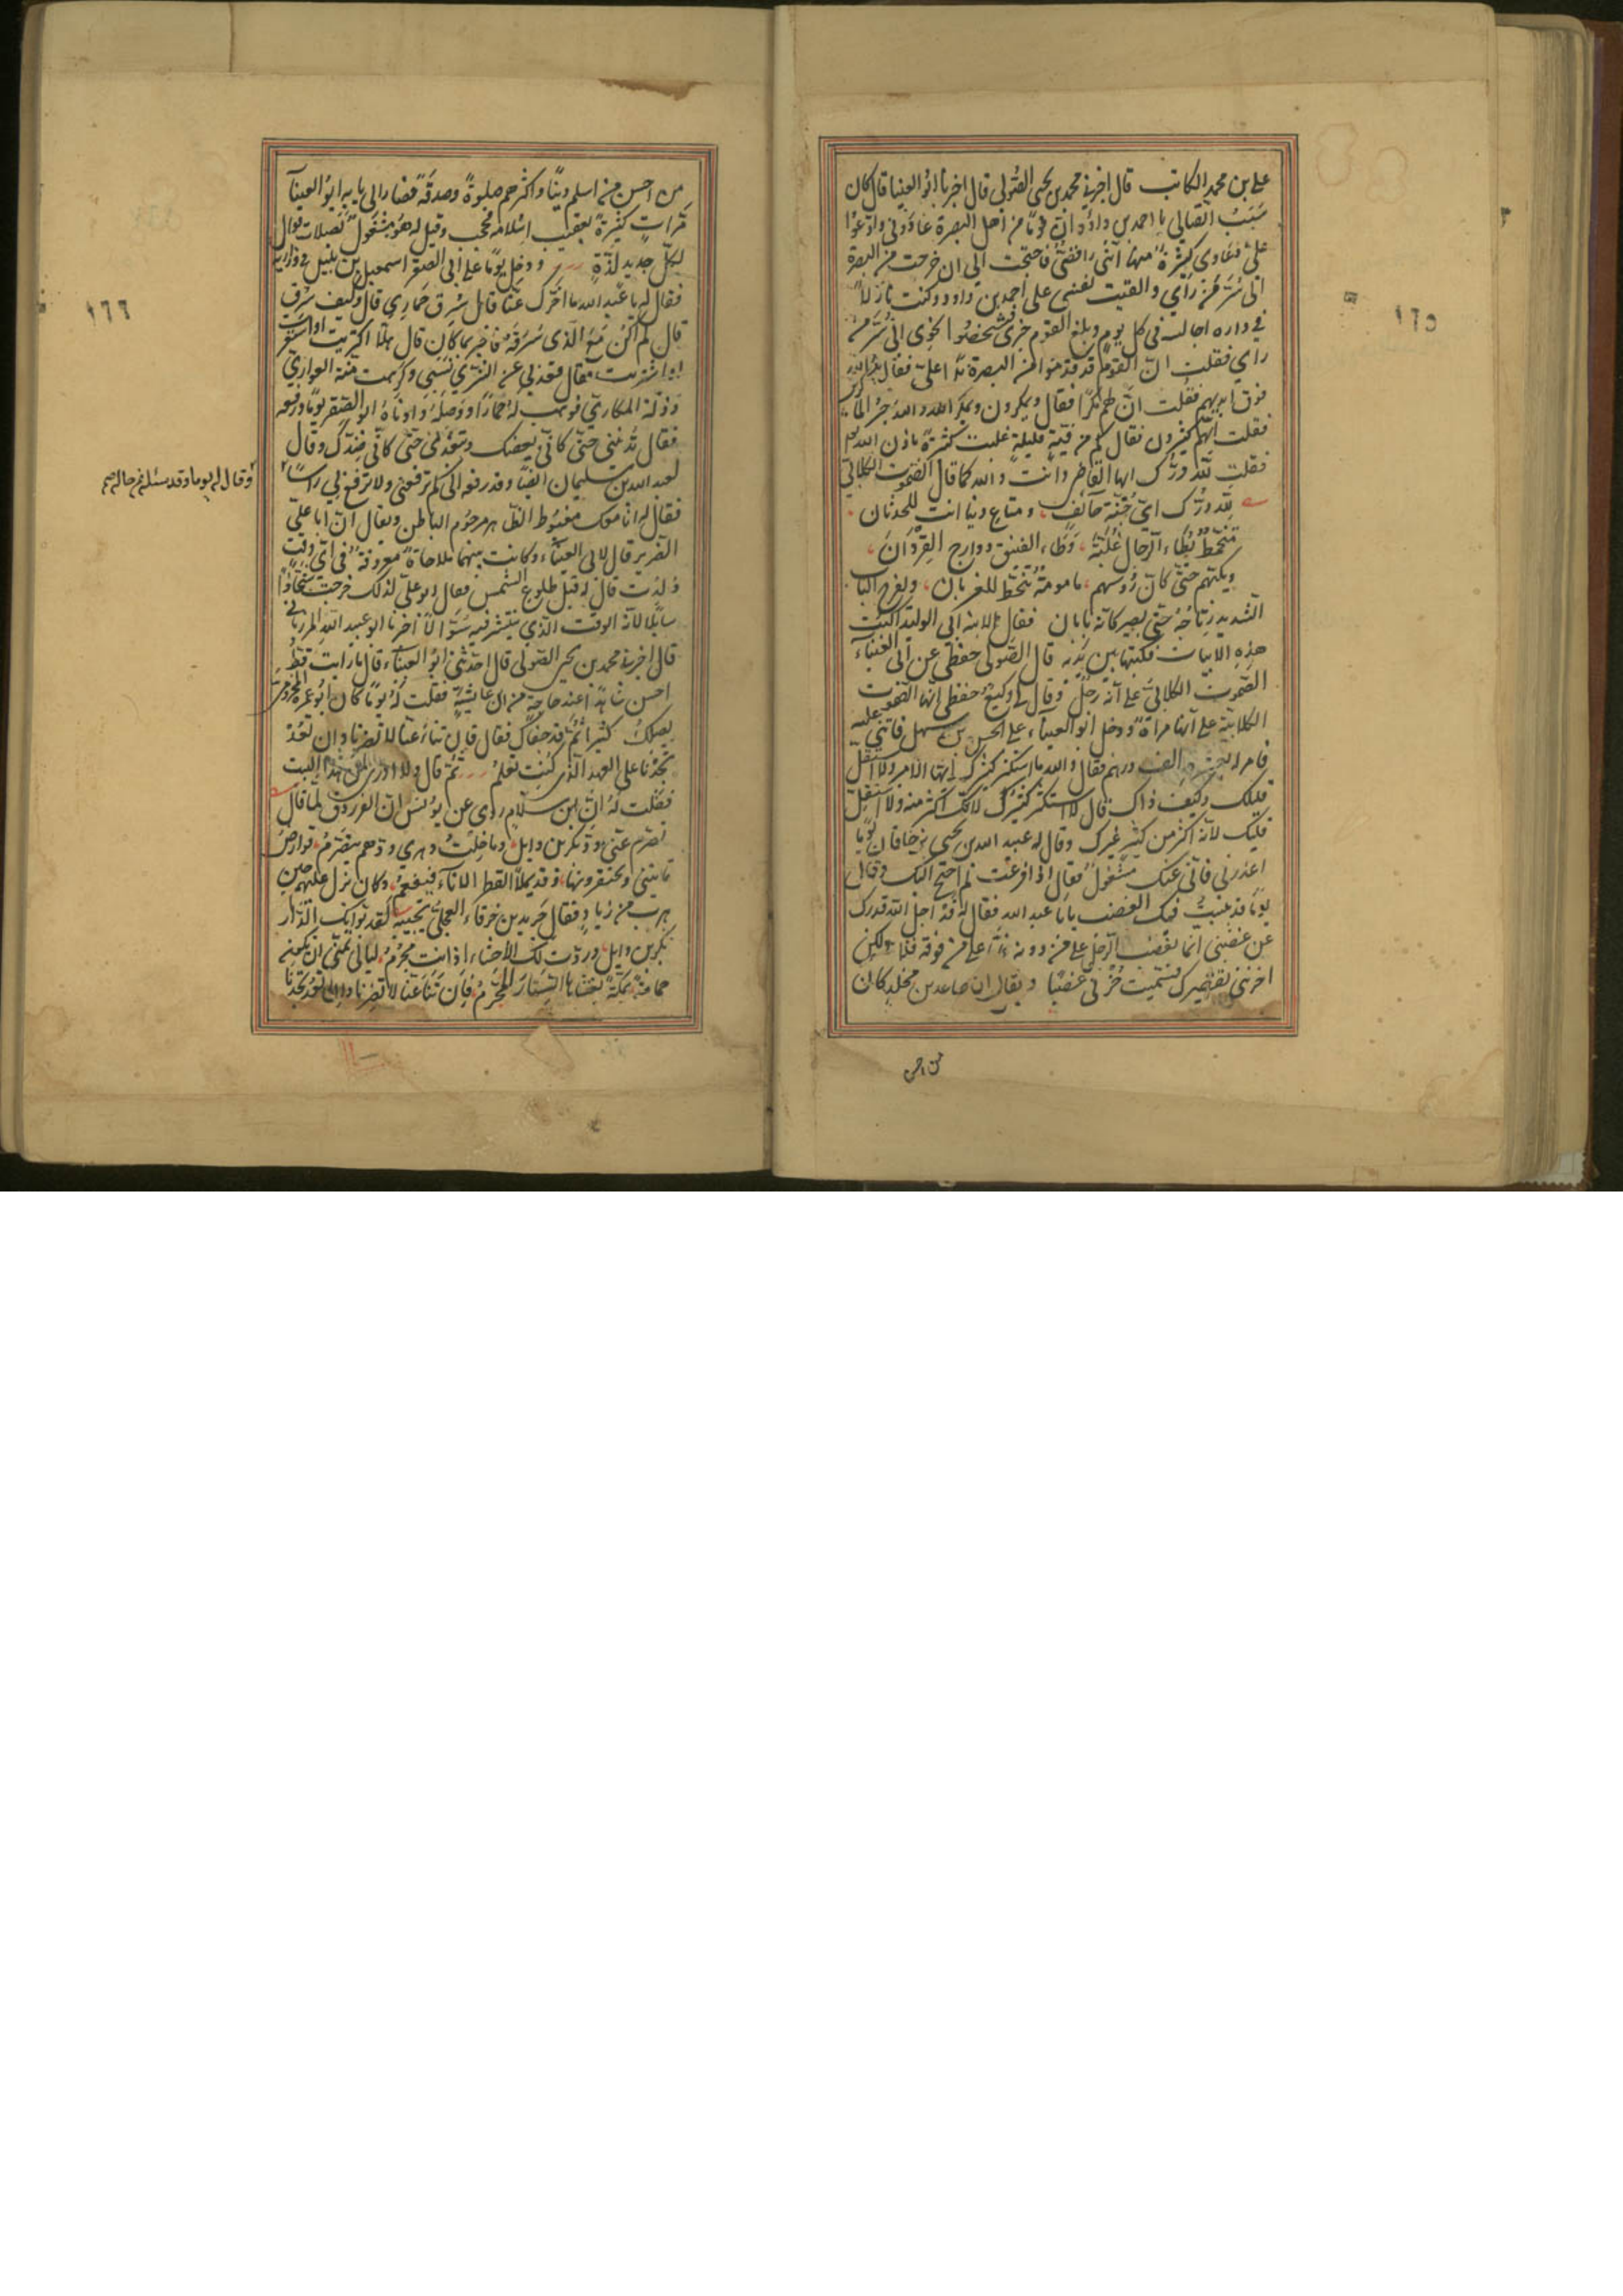 ١٦٥
علي بن محمد الكاتب قال اخبرني محمد بن يحيى الصُّولي قال اخبرنا ابو العينا قال كان
سَبَبُ اتصالي باحمد بن داؤد انّ قومًا من اهل البصرة عادوني وادّعوا
عليّ دعاوى كثيرة منها انّني رافضيّ فاحتجت الى ان خرجت من البصرة
الى سُرّ من رأي والقيت نفسي على احمد بن داود وكنت نازلاً
في داره اجالسه في كل يوم وبلغ القوم خبري فشخصُوا نحوى الى سُرّ من
راى فقلت انّ القوم قد قدموا من البصرة يدًا علىّ فقال يدُ الله
فوق ايديهم فقلت انّ لهم مكرًا فقال ويمكرون ويمكر الله والله خير الماكرين
فقلت انّهم كثيرون فقال كم من فئة قليلةٍ غلبت كثيرةً باذن الله
فقلت لله درّك ايها القاضى وانت والله كما قال الصَّمُوت الكلابيّ
لله درّك اىّ جُنّة خائف، ومتاع دنيا انت للحدثان
متخمّط يطأ الرّجال غُلُبّةً، وَطأ الفنيق دوارج القِردان
ويكبّهم حتّى كانّ رؤسهم، مامومةٌ تنحطّ للغربان، ويفرج الباب
الشديد رتاجُه حتّى يصير كانّه بابان فقال لابنه ابى الوليد اكتب
هذه الابيات فكتبها بين يديه قال الصّولى حفظى عن ابى العيناء
الصّموت الكلابيّ على انّه رجلٌ وقال لي وكيعٌ حفظى انّها الصّموت
الكلابيّة على انّها مراة ودخل ابو العيناء على الحسن بن سهل فاثنى عليه
فامر له بعشرة الف درهم فقال والله ما استكثر كثيرك ايها الامير ولا استقلّ
قليلك وكيف ذاك قال لا استكثر كثيرك لانّك اكثر منه ولا استقلّ
قليلك لانّه اكثر من كثير غيرك وقال له عبيد الله بن يحيى بن خاقان يومًا
اعذرني فانّي عنك مشغول فقال اذا فرغت لم احتج اليك وقال
يومًا قد تبيّنتُ فيك الغضب يا با عبد الله فقال له قد اجل الله قدرك
عن غضبي انّما يغضب الرّجل على من دونه فامّا على من فوقه فلا ولكن
احزننى تقصيرك فسميت حُزني غضبًا ويقال ان صاعد بن مخلد كان
من احسن
١٦٦
من احسن من اسلم دينًا واكثرهم صلوةً وصدقةً فصار الى بابه ابو العينآ
مرّاتٍ كثيرةً بعقيب اسلامه فحجب وقيل له هو مشغولٌ بصلاته فقال
لكلّ جديد لذّة ودخل يومًا على ابي الصقر اسمعيل بن بلبل في وزارته
فقال له يا عبد الله ما اخّرك عنّا قال سُرق حَمارى قال وكيف سُرق
قال لم اكن مع الّذى سَرَقَه فاخبر بما كان قال هلّا اكتريت او استعرت
او اشتريت فقال قعد بي عن الشّرى نَشَبي وكرهت منّة العوارىّ
وذلّة المكارىّ فوهب له حمارًا ووَصلَهُ وادناهُ ابو الصقر يومًا ورفعه
فقال تُدنيني حتّى كانّى بعضك وتبعدني حتّى كانّى ضدّك وقال
لعبد الله بن سليمان ايضًا وقد رفعه الى كم ترفعنى ولا ترفع بي راسًا
وقال له يوما وقد سئله عن حاله
فقال له انا معك مغبُوط الظّاهر مرحوم الباطن ويقال انّ ابا علىّ
الضّرير قال لابى العيناء وكانت بينهما ملاحاةٌ معروفةٌ في اىّ وقتٍ
وُلدت قال له قبل طلوع الشّمس فقال ابو علىّ لذلك خرجت شحّاذًا
سايلًا لانّه الوقت الّذى ينتشر فيه السُؤّال اخبرنا ابو عبد الله المرزبانى
قال اخبرني محمد بن يحيى الصّولى قال حدّثنى ابو العيناء قال ما رايت قطّ
احسن شاهدًا عند حاجةٍ من ابن عائشة فقلت له يومًا كان ابو عمرو المخزومى
يصلك كثيرًا ثمّ قد جفاك فقال فان تنأ عنّا لا تضرنا وان تعُد
تجدنا على العهد الّذى كنت تعلم ثمّ قال ولا ادرى لمن هذا البيت
فقلت له انّ ابن سلّام روى عن يونس انّ الفرزدق لمّا قال
تصرّم عنّي ودّ بكر بن وايل وما خِلتُ دهري ودّهم يتصرّم، قوارصُ
تاتينى ويحتقرونها، وقد يملأ القطر الاناء فيفعمُ، وكان نزل عليهم حين
هرب من زياد فقال جرير بن خرقاء العجليّ يجيبه لقد بوّأتك الدّار
بكر بن وايل، وردّت لك الأحشاء اذ انت مجرمُ، ليالي تمنّى ان تكون
حمامةً بمكّة يغشاها الستار المحرّم، فإن تنأ عنّا لا تضرنا وان تعُد تجدنا